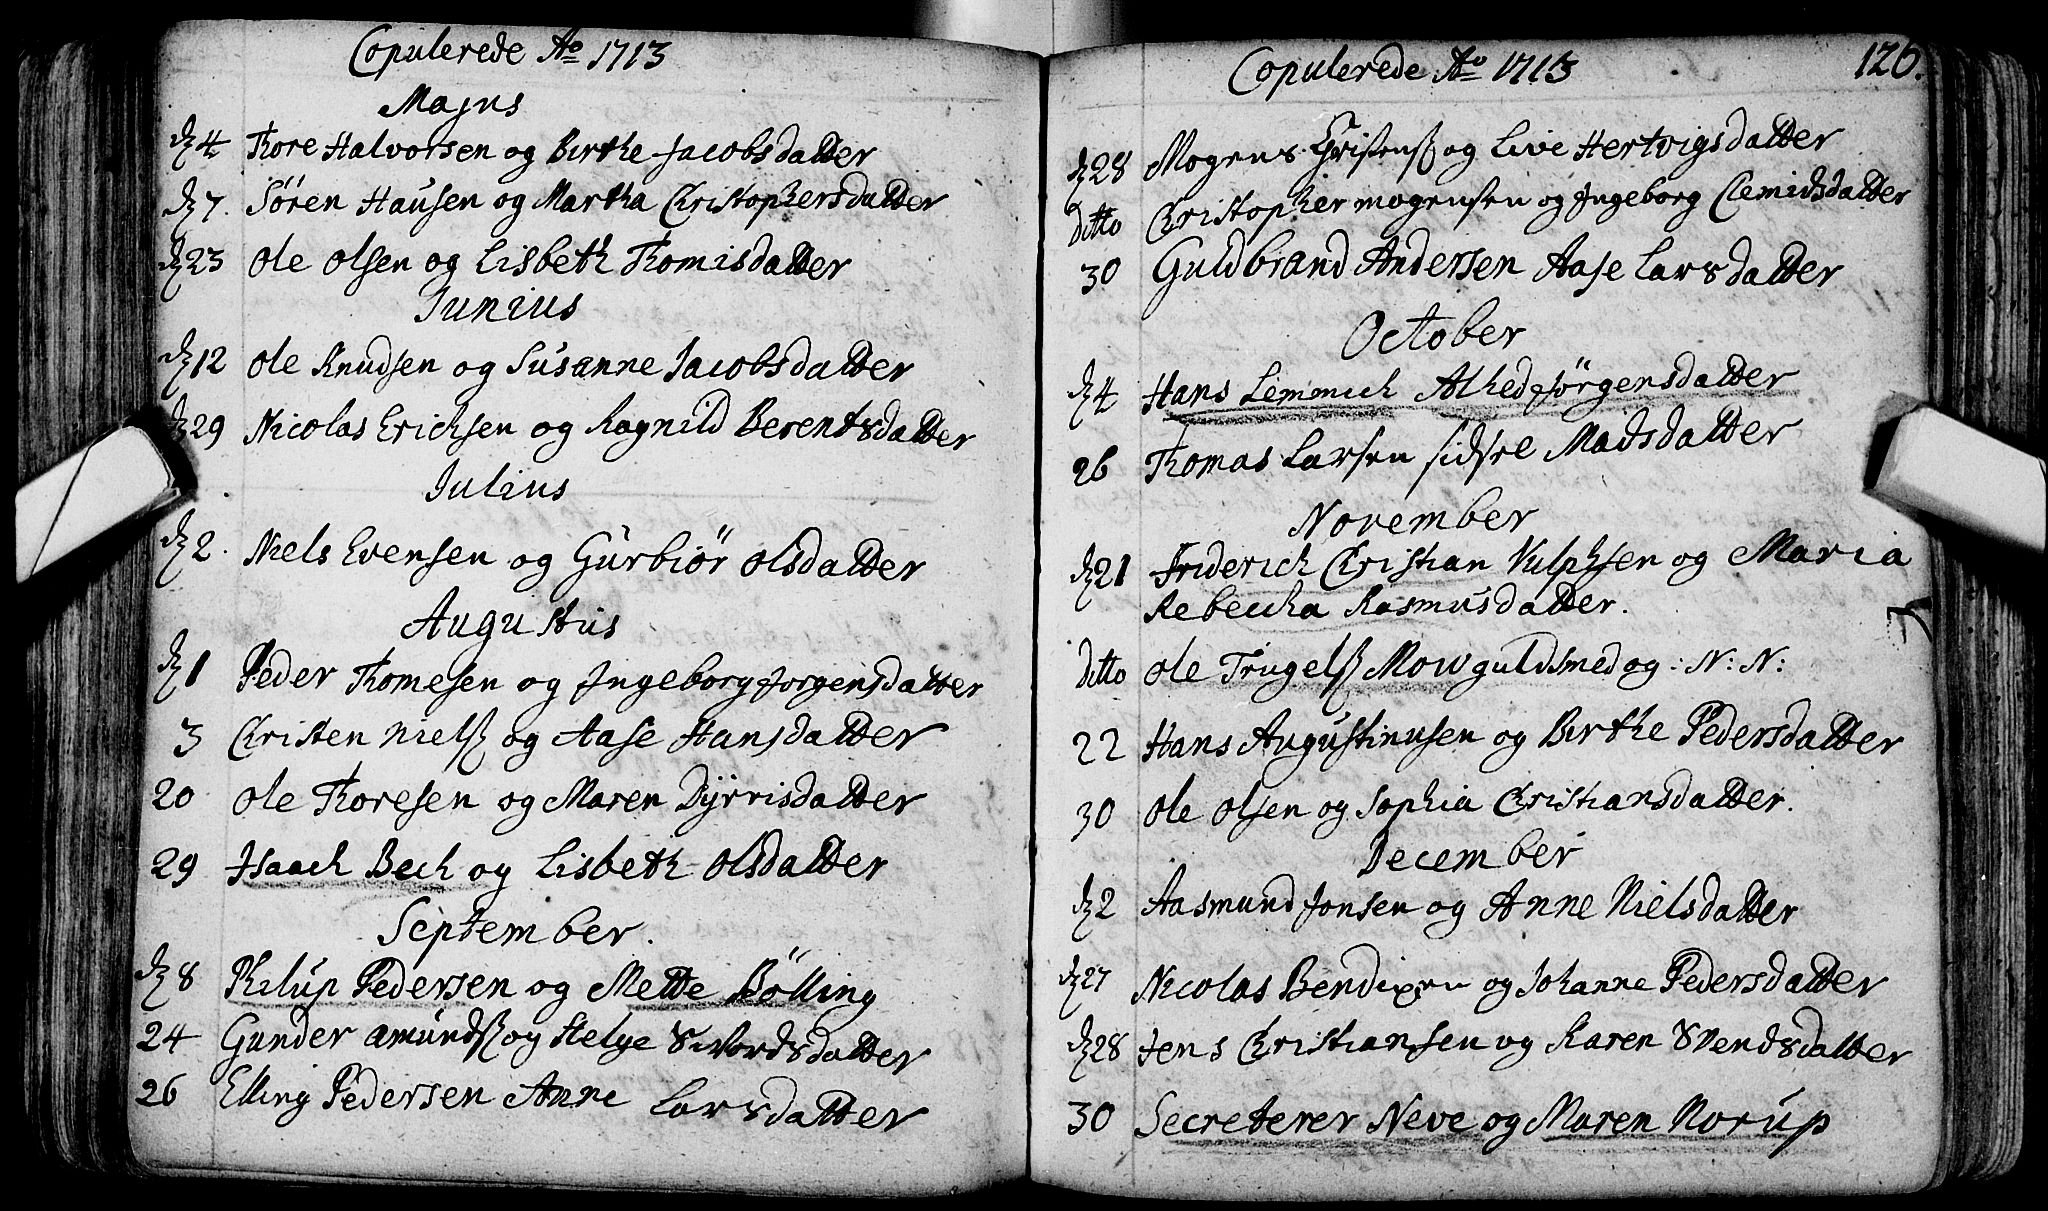 Copulerede Ao 1713
Majus
dz 4 Thore Halvorsen og Birthe Jacobsdatter
dz 7. Sören Hansen og Martha Christophersdatter
dz 23 Ole Olsen og Lisbeth Thomisdatter
Junius
dz 12 Ole Knudsen og Susanne Jacobsdatter
dz 29 Nicolas Erichsen og Ragnild Berentsdatter
Julius
dz 2. Niels Evensen og Gurbiör Olsdatter
Augustus
dz 1 Peder Thomesen og Ingeborg Jorgensdatter
3 Christen Nielsß og Aase Hansdatter
20 Ole Thoresen og Maren Dÿrrisdatter
29 Isaach Bech og Lisbeth Olsdatter
September.
dz 8 Philup Pedersen og Mette Bölling
24 Gunder Amundsß og Helge Sivordsdatter
26 Elling Pedersen Anne Larsdatter
Copulerede Ao 1713
126.
dz 28 Mogens Christensß og Live Hertvigsdatter
Ditto Christopher Mogensen og Ingeborg Clemidsdatter
30 Guldbrand Andersen Aase Larsdatter
October
dz 4 Hans Lemmich Alhed Jörgensdatter
26 Thomas Larsen Sidsel Madsdatter
November
dz 21 Friderich Christian Vulphsen og Maria
Rebecka Rasmusdatter.
Ditto Ole Trugelsß Mow guldsmed og : N: N:
22 Hans Augustinusen og Birthe Pedersdatter
30 Ole Olsen og Sophia Christiansdatter.
December
dz 2 Aasmund Jonsen og Anne Nielsdatter
dz 27 Nicolas Bendixen og Johanne Pedersdatter
dz 28 Jens Christiansen og Karen Svendsdatter
30 Secreterer Neve og Maren Norup